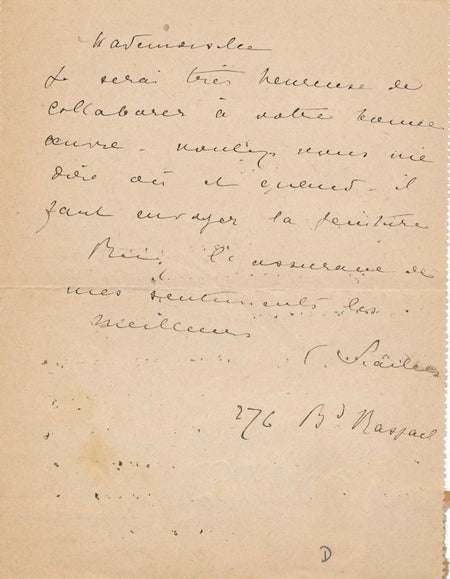 Mademoiselle
Je serai très heureuse de
collaborer à votre bonne
œuvre - voulez vous me
dire où et quand - il
faut envoyer la peinture
l'assurance de
mes sentiments les
meilleurs
276 Bd Raspail
D